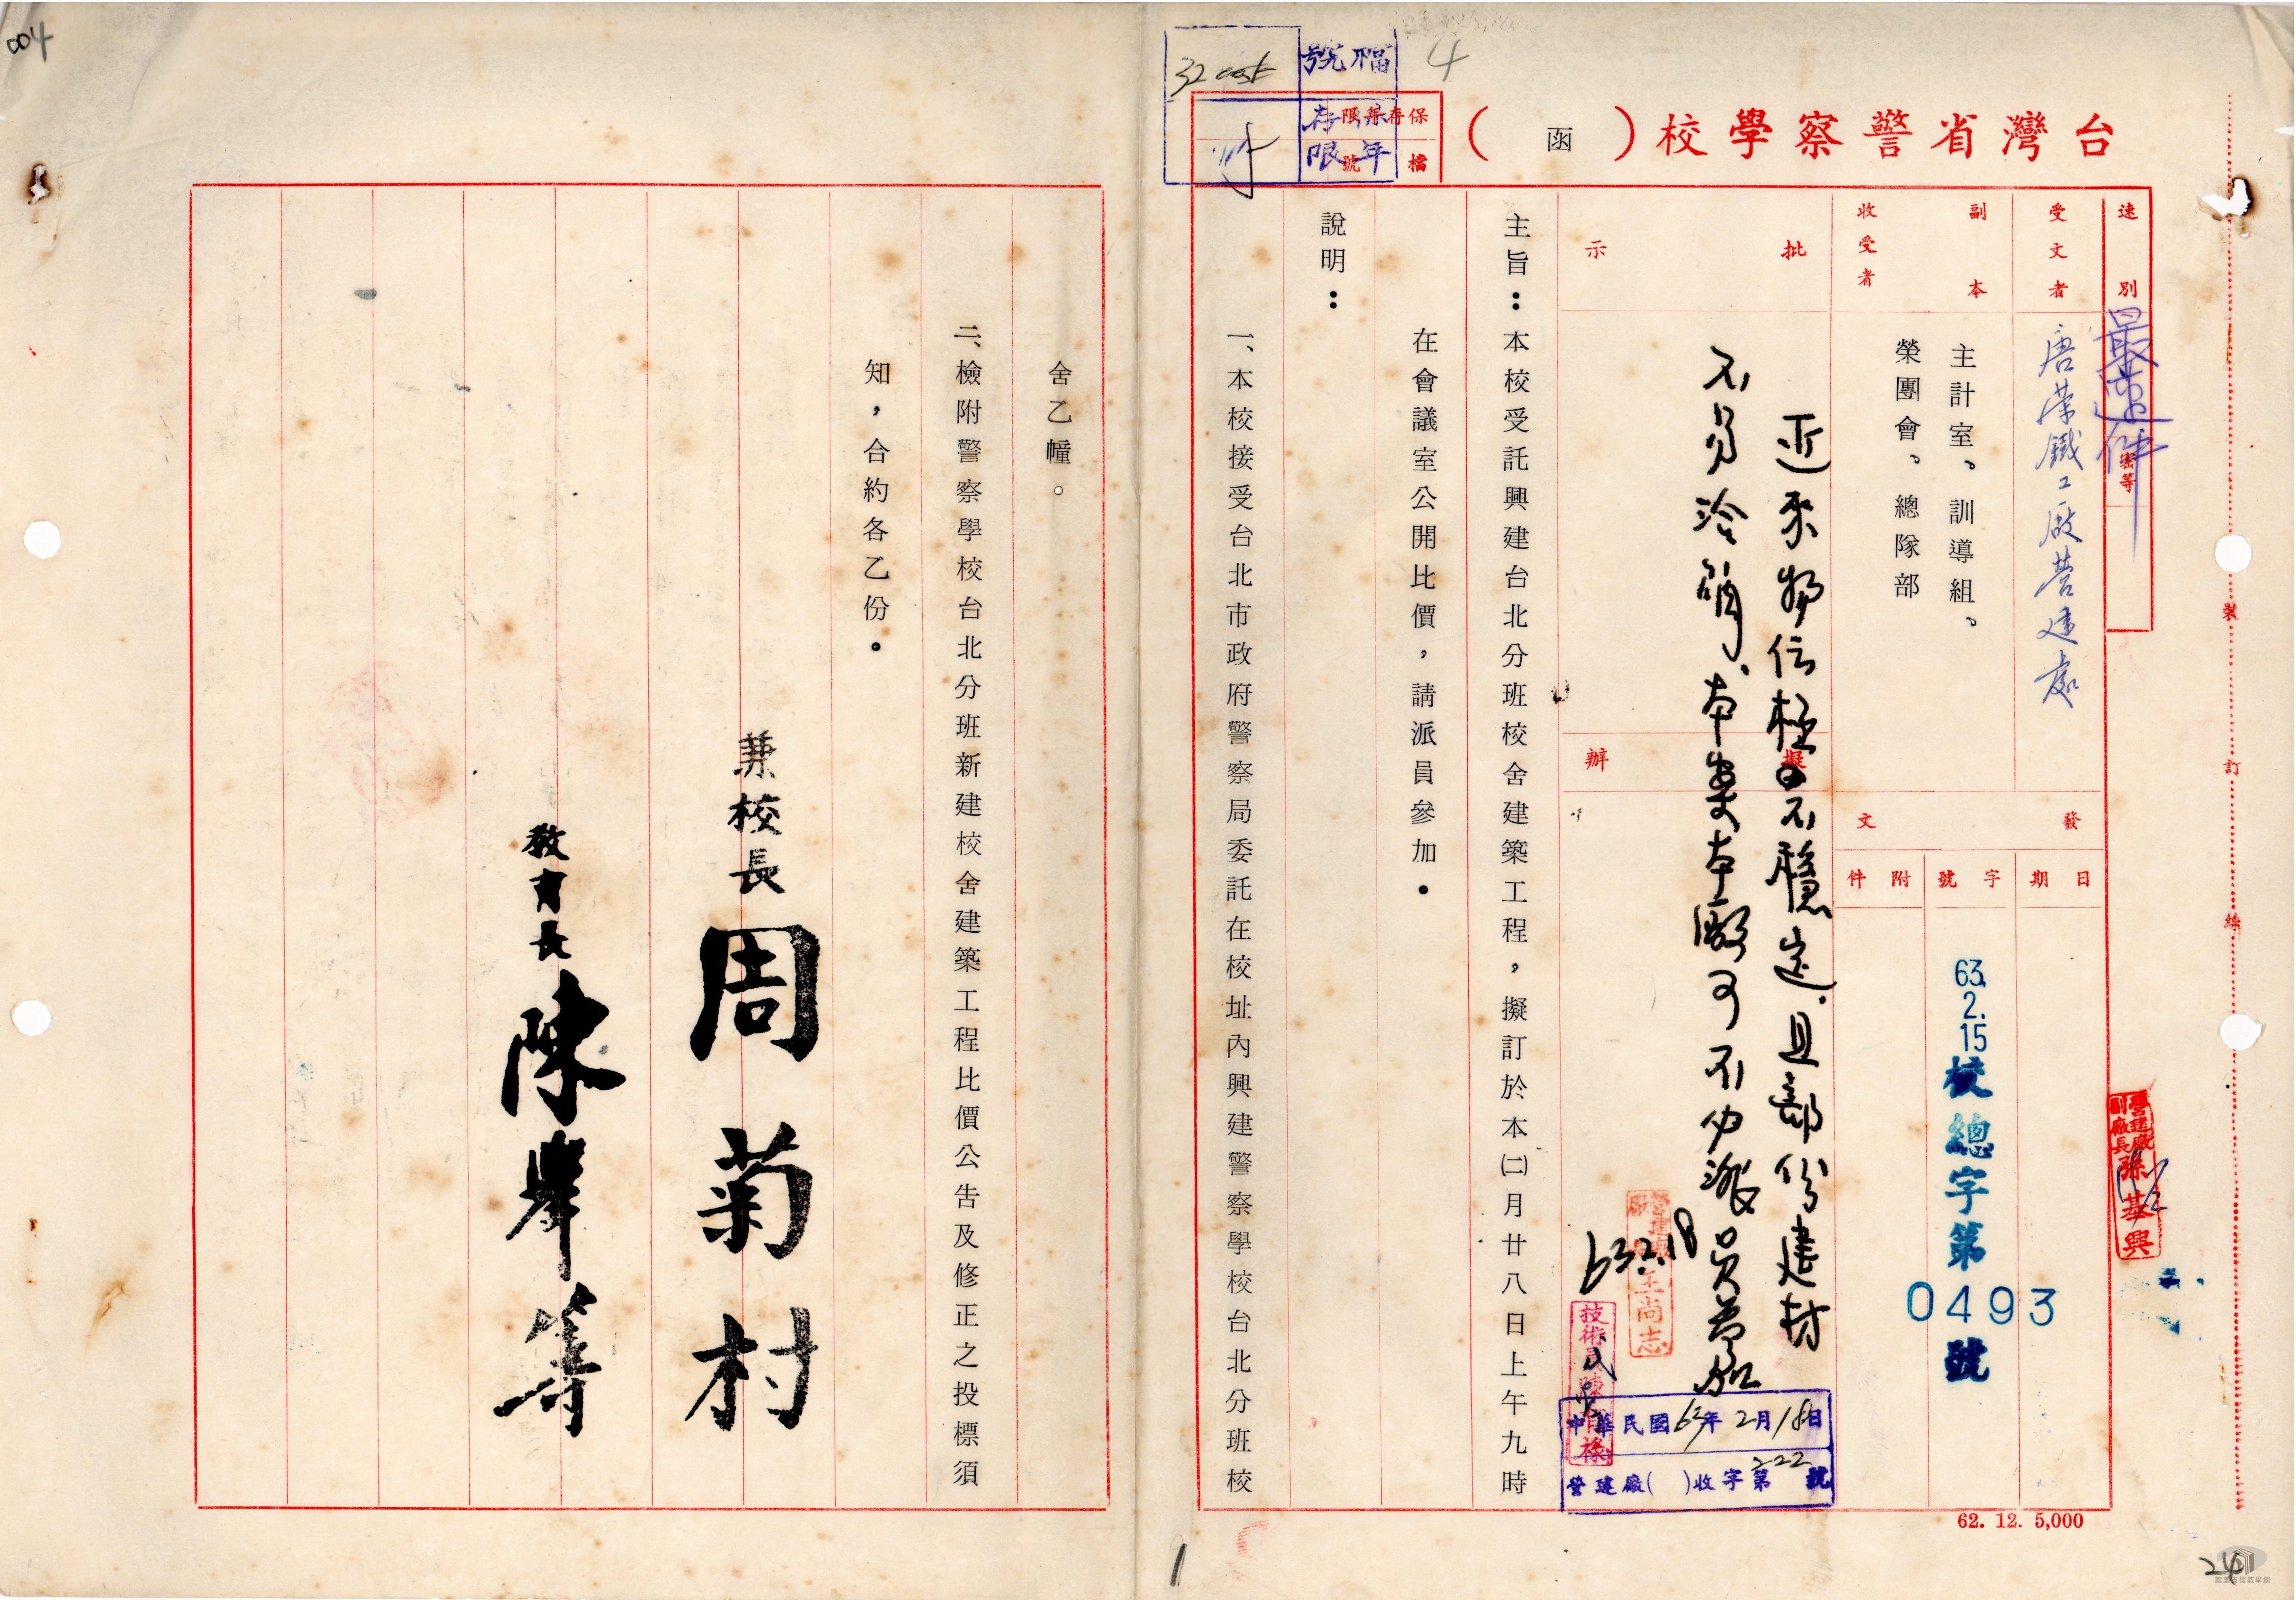 004
4
檔號
保存年限
保存年限
檔號
台灣省警察學校（函）
速別
最速件
密等
受文者
唐榮鐵工廠營建處
副本收受者
主計室、訓導組、
榮團會、總隊部
發文
日期
字號
附件
63.2.15
校總字第
0493
號
批示
擬辦
近來物價極不穩定，且部份建材
不易洽購，本案本廠可不必派員參加
63.2.18
營建廠
王尚志
技術員
中華民國63年2月18日
營建廠（ ）收字第222號
主旨：本校受託興建台北分班校舍建築工程，擬訂於本㈡月廿八日上午九時
在會議室公開比價，請派員參加。
說明：
一、本校接受台北市政府警察局委託在校址內興建警察學校台北分班校
舍乙幢。
二、檢附警察學校台北分班新建校舍建築工程比價公告及修正之投標須
知，合約各乙份。
兼校長 周菊村
教育長 陳擧等
營建廠
副廠長 孫基興
裝
訂
線
62. 12. 5,000
1
24